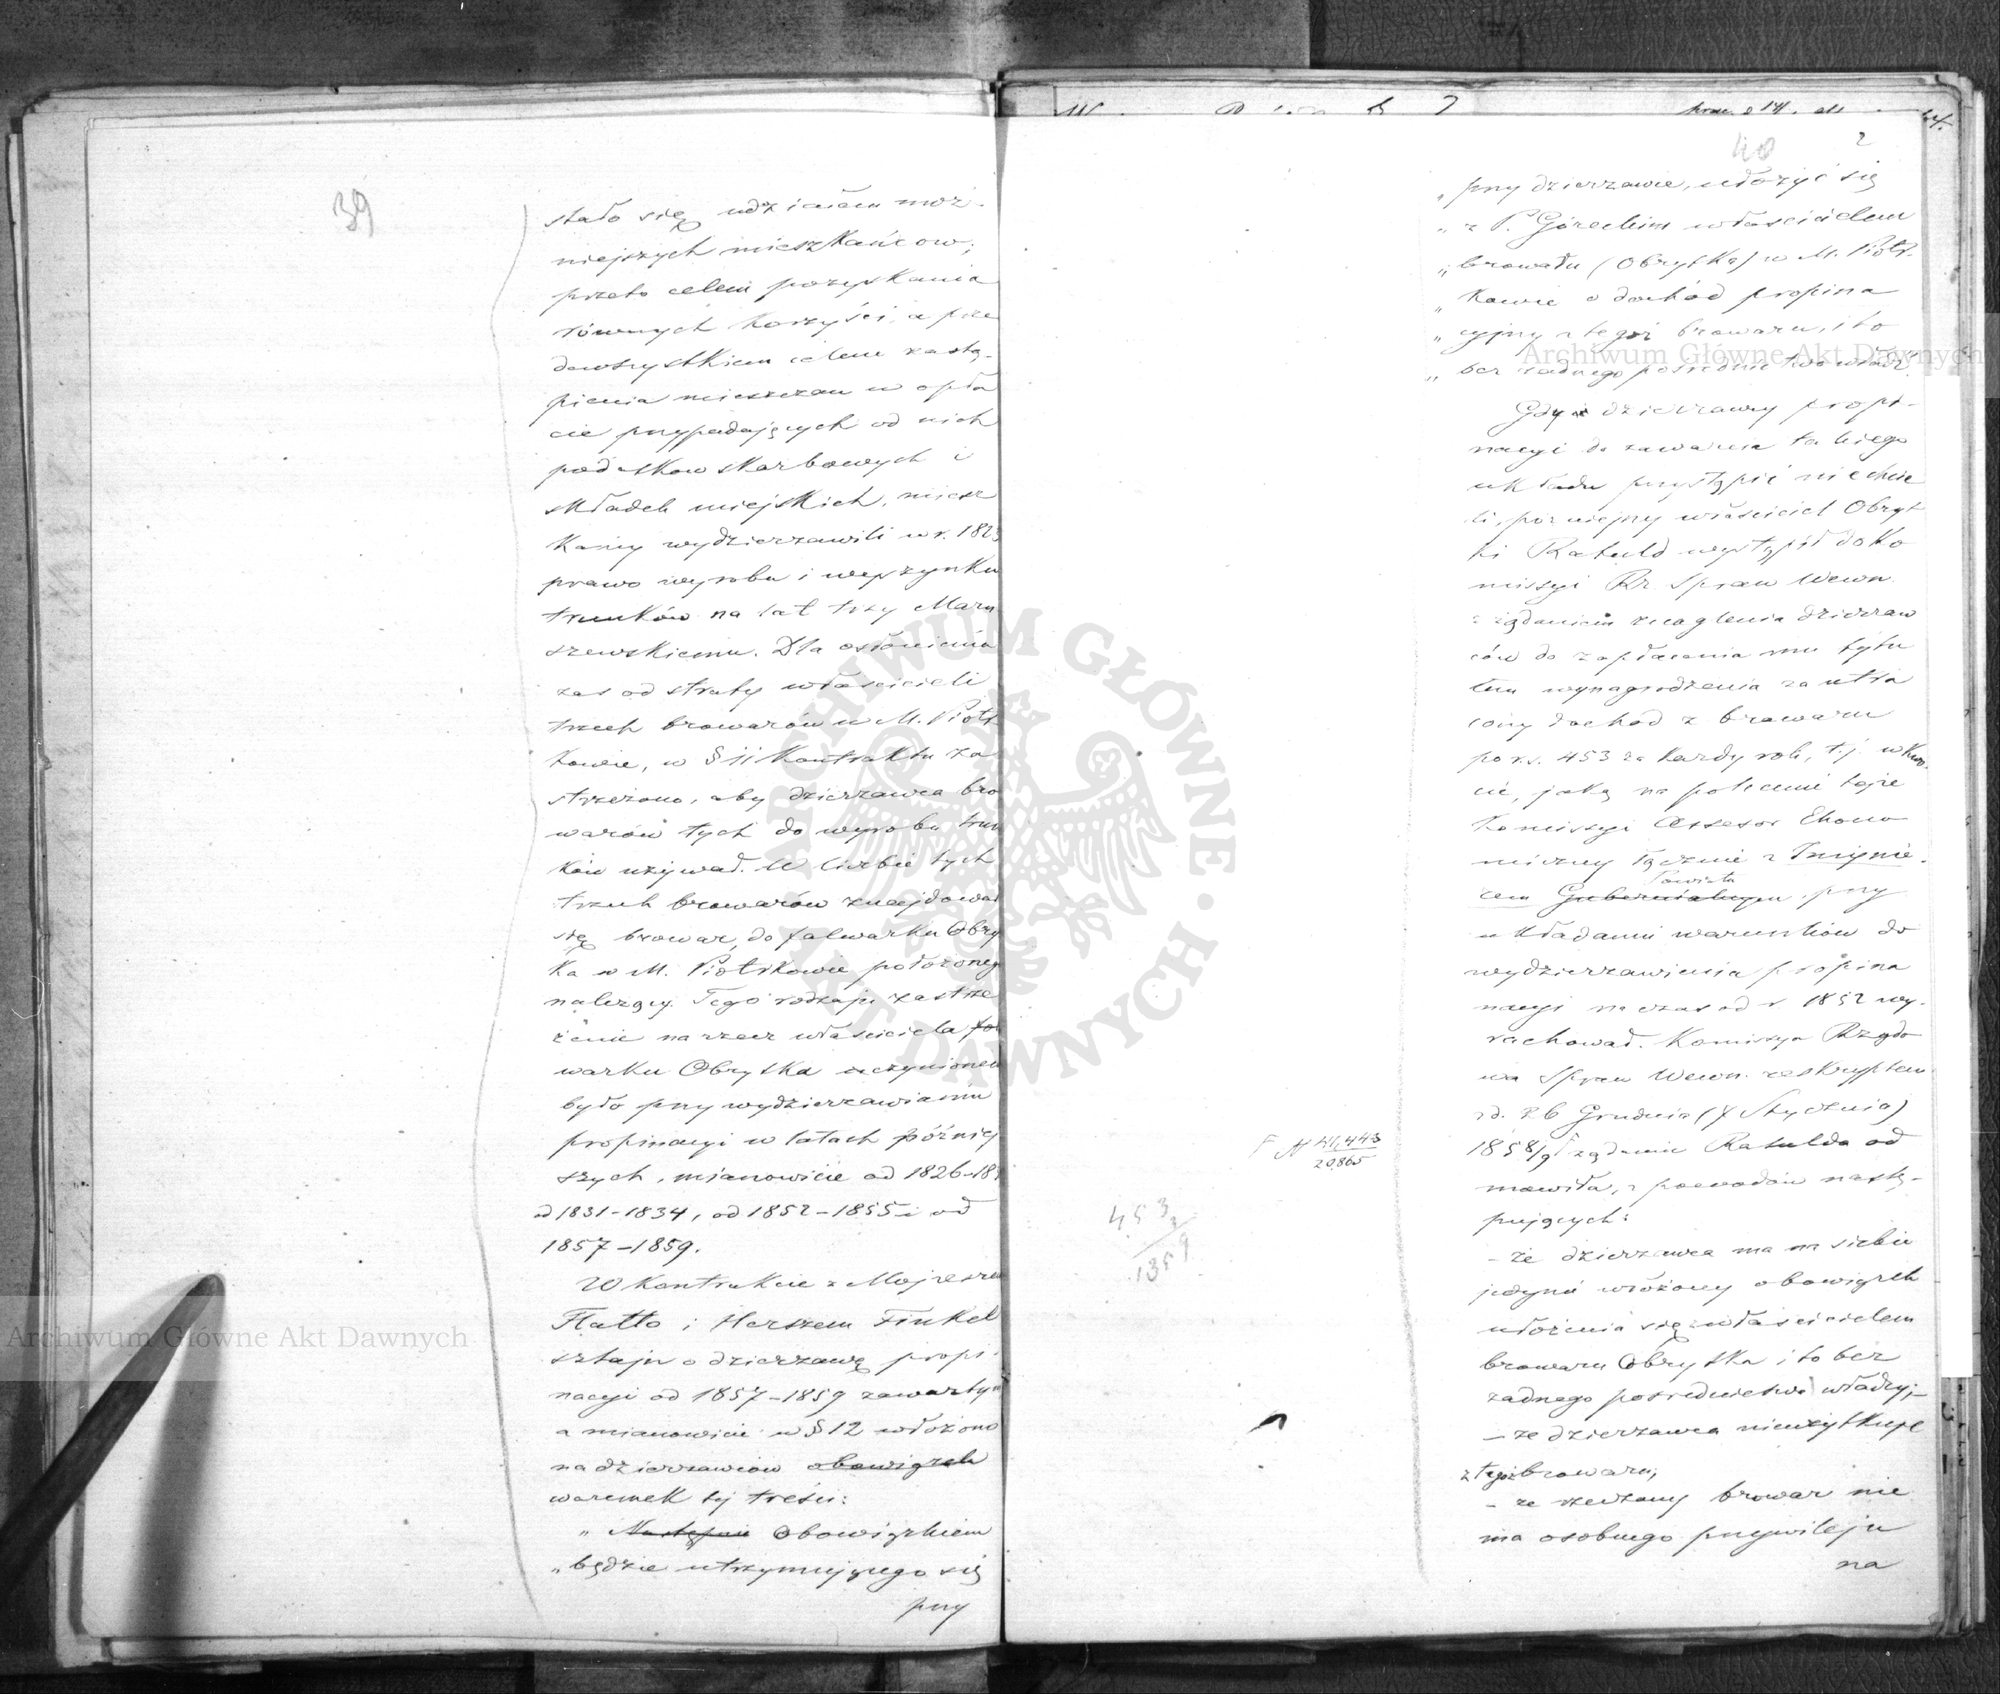 39
stało się udziałem moż-
niejszych mieszkańcow;
przeto celem pozyskania
równych korzyści, a prze
dewszystkiem celem zastą-
pienia mieszczan w opła
cie przypadających od nich
podatkow skarbowych i
składek miejskich, miesz
kańcy wydzierzawili w r. 182
prawo wyrobu i wyszynku
trunków na lat trzy Maru
szewskiemu. Dla osłonienia
zas od straty właścicieli
trzech browarów w M. Piotr
kowie, w § 11 Kontraktu za
strzeżono, aby dzierzawca bro
warów tych do wyrobu trun
ków używał. W liczbie tych
trzech browarów znajdował
się browar, do folwarku Obry
tka w M. Piotrkowie położoneg
należący. Tego rodzaju zastrze
żenie na rzecz właściciela fol
warku Obrytka uczynionem
było przy wydzierzawianiu
propinacyi w latach później
szych, mianowicie od 1826-18
od 1831-1834, od 1852-1855 i od
1857-1859.
W kontrakcie z Mojzeszem
Flatto i Herszem Finkel
sztajn o dzierzawę propi-
nacyi od 1857-1859 zawartym
a mianowicie w § 12 włożono
na dzierzawców obowiązek
warunek tej treści:
" Następnie Obowiązkiem
"będzie utrzymującego się
przy
40
2
"przy dzierzawie, ułożyć się
"z P. Góreckim właścicielem
"browaru (Obrytka) w M. Piotr-
"kowie o dochód propina
"cyjny z tegoż browaru, i to
"bez zadnego pośrednictwa władz".
Gdy dzierzawcy propi-
nacyi do zawarcia takiego
układu przystąpić nie chcie
li, pózniejszy właściciel Obryt
ki Ratuld wystąpił do Ko
missyi Rz. Spraw Wewn.
z ządaniem znaglenia dzierzaw
ców do zapłacenia mu tytu
łem wynagrodzenia za utra
cony dochód z browaru
po r.s. 453 za każdy rok, t.j. w kwo-
cie, jaką na polecenie tejże
Komissyi Assesor Ekono
miczny łącznie z Inżynie-
rem Gubernialnym Powiatu przy
układaniu warunków do
wydzierzawienia propina
nacyi na czas od r. 1852 wy-
rachował. Komissya Rządo
wa Spraw Wewn. reskryptem
z d. 26 Grudnia (7 Stycznia)
1858/9 r. ządanie Ratulda od
mowiła, z powodów nastę-
pujących:
F N 41,443
20,865
453
3
1359
- że dzierzawca ma na siebie
jedynie włożony obowiązek
ułożenia się z właścicielem
browaru Obrytka i to bez
zadnego pośrednictwa władzy;-
- ze dzierzawca nieużytkuje
z tegoż browaru;
- ze rzeczony browar nie
ma osobnego przywileju
na
Archiwum Główne Akt Dawnych
Archiwum Główne Akt Dawnych
ARCHIWUM GŁÓWNE AKT DAWNYCH